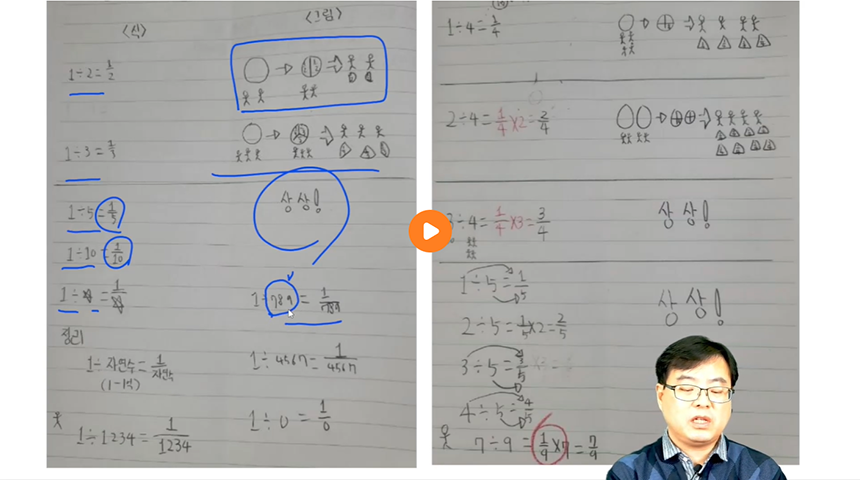 <식> <그림>
1÷2=1/2
1÷3=1/3
1÷5=1/5
상상!
1÷10=1/10
1÷789=1/789
정리
1÷자연수=1/자연수
1÷4567=1/4567
1÷0=1/0
1÷1234=1/1234
1÷4=1/4
2÷4=1/4×2=2/4
3÷4=1/4×3=3/4
상상!
1÷5=1/5
상상!
2÷5=1/5×2=2/5
3÷5=3/5
4÷5=4/5
7÷9=1/9×7=7/9